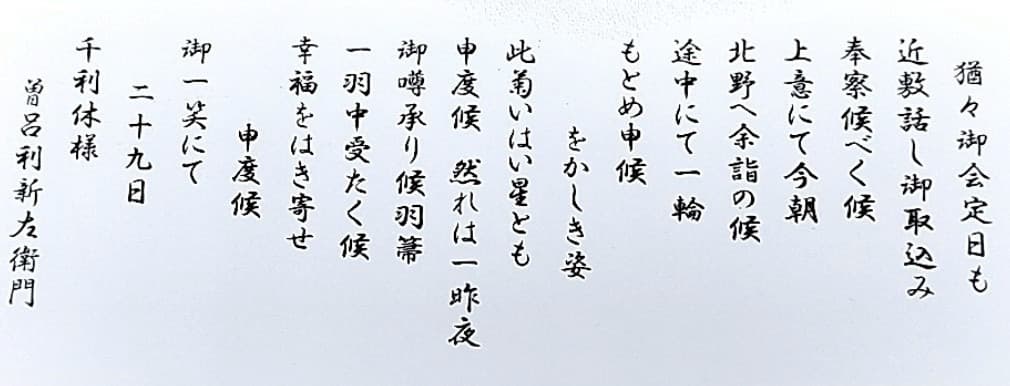 猶々御会定日も
近敷話し御取込み
奉察候べく候
上意にて今朝
北野へ余詣の候
途中にて一輪
もとめ申候
をかしき姿
此菊いはい星とも
申度候 然れは一昨夜
御噂承り候羽箒
一羽中受たく候
幸福をはき寄せ
申度候
御一笑にて
二十九日
千利休様
曽呂利新左衛門